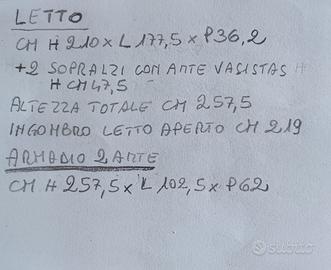 LETTO
CM H 210 x L 177,5 x P36,2
+2 SOPRALZI CON ANTE VASISTAS H
H CM 47,5
ALTEZZA TOTALE CM 257,5
INGOMBRO LETTO APERTO CM 219
ARMADIO 2 ANTE
CM H 257,5 x L 102,5 x P62
subito